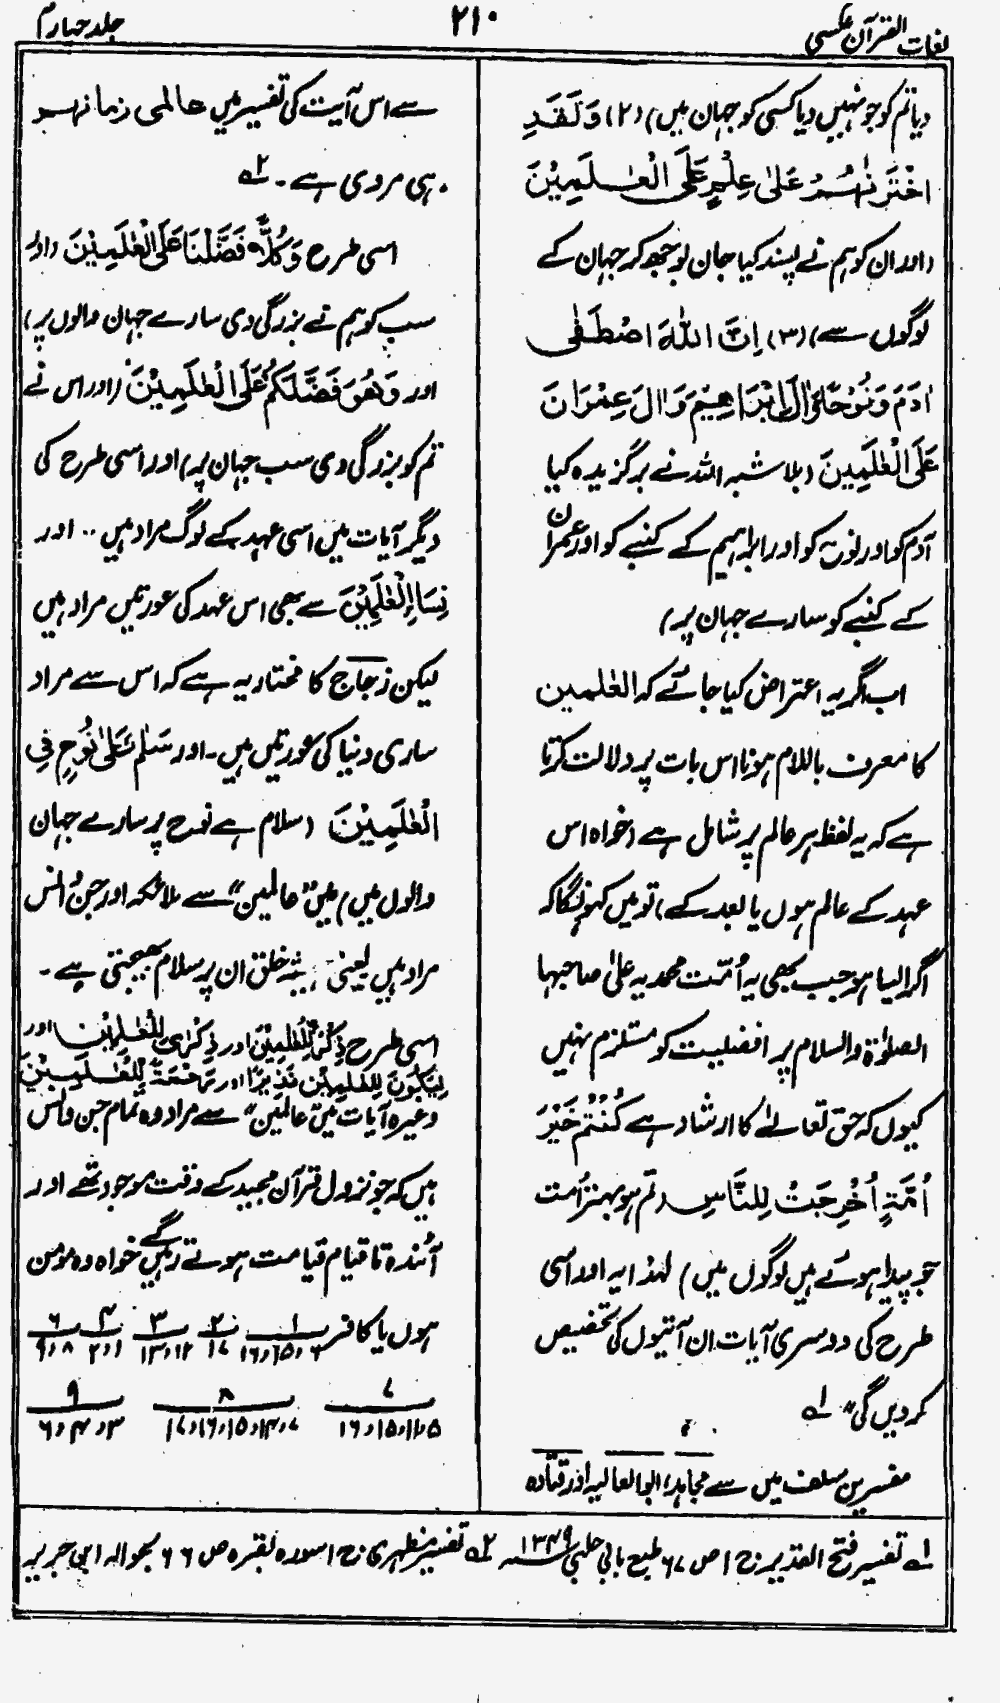 لغات القرآن عکسی
۲۱۰
جلد چہارم
دیا تم کو جو نہیں دیا کسی کو جہان میں) (۲) وَلَقَدِ
اخْتَرْنٰهُمْ عَلٰی عِلْمٍ عَلَی الْعٰلَمِیْنَ
(اور ان کو ہم نے پسند کیا جان بوجھ کر جہان کے
لوگوں سے) (۳) اِنَّ اللّٰهَ اصْطَفٰی
اٰدَمَ وَنُوْحًا وَّاٰلَ اِبْرَاهِیْمَ وَاٰلَ عِمْرَانَ
عَلَی الْعٰلَمِیْنَ (بلا شبہ اللہ نے برگزیدہ کیا
آدم کو اور نوح کو اور ابراہیم کے کنبے کو اور عمران
کے کنبے کو سارے جہان پر)
اب اگر یہ اعتراض کیا جائے کہ العٰلمین
کا معرف باللام ہونا اس بات پر دلالت کرتا
ہے کہ یہ لفظ ہر عالم پر شامل ہے (خواہ اس
عہد کے عالم ہوں یا بعد کے) تو میں کہونگا کہ
اگر ایسا ہو جب بھی یہ اُمّت محمدیہ علیٰ صاحبہا
الصلوٰۃ والسلام پر افضلیت کو مستلزم نہیں
کیوں کہ حق تعالےٰ کا ارشاد ہے کُنْتُمْ خَیْرَ
اُمَّةٍ اُخْرِجَتْ لِلنَّاسِ (تم ہو بہتر اُمت
جو پیدا ہوئے ہیں لوگوں میں) لہٰذا یہ اور اسی
طرح کی دوسری آیات ان آئیوں کی تخصیص
کر دیں گی" لے۱
مفسرین سلف میں سے مجاہد، ابوالعالیہ اور قتادہ
سے اس آیت کی تفسیر میں عالمی زمانهم
ہی مروی ہے۔ ۲ے
اسی طرح وَکُلًّا فَضَّلْنَا عَلَی الْعٰلَمِیْنَ (اور
سب کو ہم نے بزرگی دی سارے جہان والوں پر)
اور وَهُوَ فَضَّلَکُمْ عَلَی الْعٰلَمِیْنَ (اور اس نے
تم کو بزرگی دی سب جہان پر) اور اسی طرح کی
دیگر آیات میں اسی عہد کے لوگ مراد ہیں ۔۔ اور
نِسَاءِ الْعٰلَمِیْنَ سے بھی اس عہد کی عورتیں مراد ہیں
لیکن زجاج کا مختار یہ ہے کہ اس سے مراد
ساری دنیا کی عورتیں ہیں۔ اور سَلٰمٌ عَلٰی نُوْحٍ فِی
الْعٰلَمِیْنَ (سلام ہے نوح پر سارے جہان
والوں میں) میں "عالمین" سے ملائکہ اور جن وانس
مراد ہیں یعنی خلق ان پر سلام بھیجتی ہے۔
اسی طرح ذِکْرٌ لِّلْعٰلَمِیْنَ اور ذِکْرٰی لِلْعٰلَمِیْنَ اور
لِیَکُوْنَ لِلْعٰلَمِیْنَ نَذِیْرًا اور رَحْمَةً لِّلْعٰلَمِیْنَ
وغیرہ آیات میں "عالمین" سے مراد وہ تمام جن وانس
ہیں کہ جو نزول قرآن مجید کے وقت موجود تھے اور
آئندہ تا قیام قیامت ہوتے رہیں گے خواہ وہ مومن
ہوں یا کافر ۱ ۲ ۳ ۴ ۶
۶، ۱۵، ۱۶ ۱۷ ۱۲، ۱۳ ۱، ۲ ۸، ۹
۷ ۸ ۹
۵، ۱۱، ۱۵، ۱۶ ۷، ۱۴، ۱۵، ۱۶، ۱۷ ۳، ۴، ۶
۱ے تفسیر فتح القدیر ج ۱ ص ۶۷ طبع بابی حلبی ۱۳۴۹ ۲ے تفسیر مظہری ج ۱ سورہ بقرہ ص ۶۶ بحوالہ ابن جریر